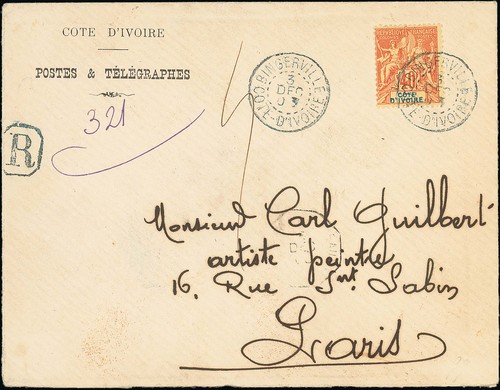 COTE D'IVOIRE
POSTES & TÉLÉGRAPHES
321
R
BINGERVILLE
3
DEC
03
COTE-D'IVOIRE
RÉPUBLIQUE FRANÇAISE
CÔTE
D'IVOIRE
BINGERVILLE
CÔTE-D'IVOIRE
Monsieur Carl Guilbert
artiste peintre
16, Rue Snt. Sabin
Paris